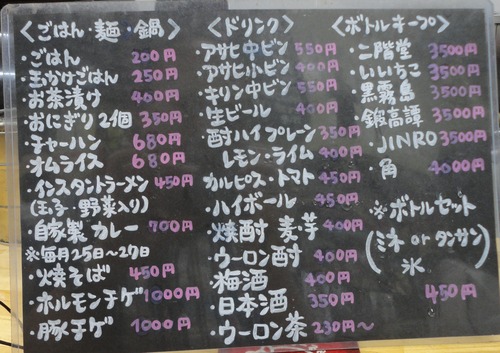 〈ごはん・麺・鍋〉
・ごはん 200円
・玉かけごはん 250円
・お茶漬け 400円
・おにぎり2個 350円
・チャーハン 680円
・オムライス 680円
・インスタントラーメン 450円
(玉子・野菜入り)
・自家製カレー 700円
※毎月25日～27日
・焼そば 450円
・ホルモンチゲ 1000円
・豚チゲ 1000円
〈ドリンク〉
・アサヒ中ビン 550円
・アサヒ小ビン 400円
・キリン中ビン 550円
・生ビール 400円
・酎ハイプレーン 350円
レモン・ライム 400円
カルピス・トマト 450円
・ハイボール 450円
・焼酎 麦・芋 400円
・ウーロン酎 400円
・梅酒 400円
・日本酒 350円
・ウーロン茶 230円～
〈ボトルキープ〉
・二階堂 3500円
・いいちこ 3500円
・黒霧島 3500円
・鍛高譚 3500円
・JINRO 3500円
・角 4000円
※ボトルセット
(ミネ or タンサン)
氷
450円